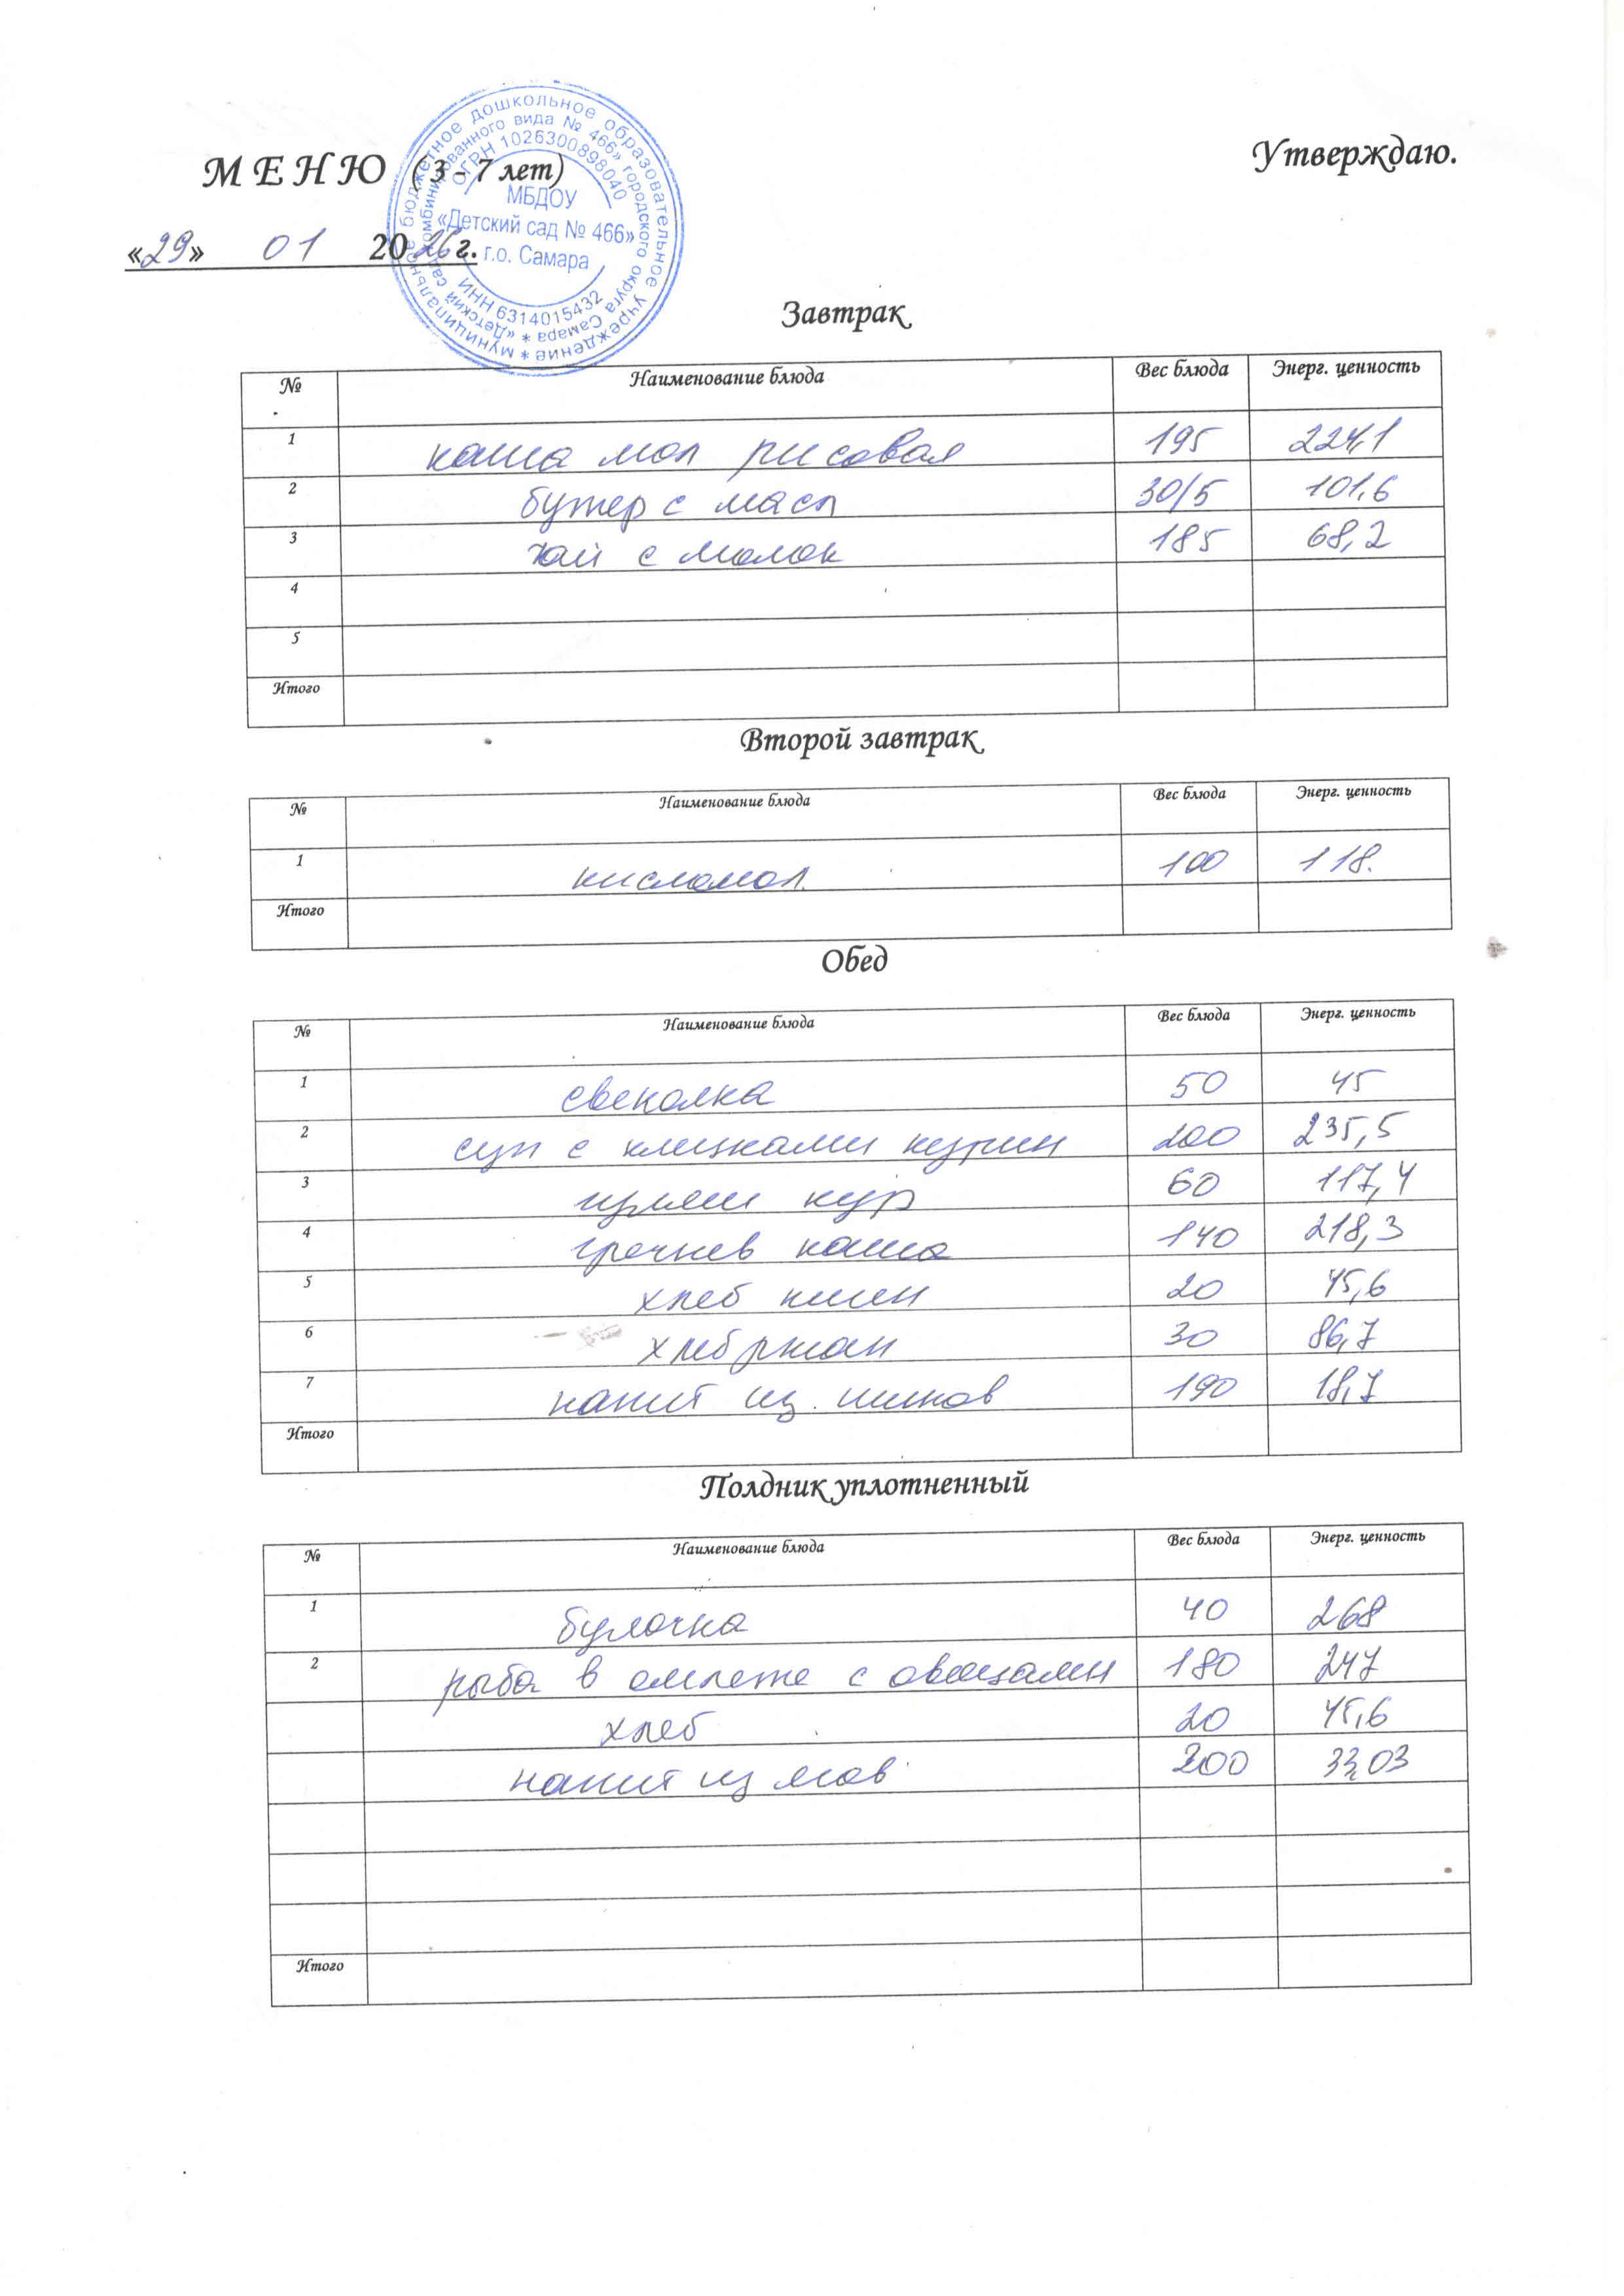 Утверждаю.
М Е Н Ю (3 - 7 лет)
«29» 01 2026 г.
муниципальное бюджетное дошкольное образовательное учреждение *
«Детский сад комбинированного вида № 466» городского округа Самара *
ОГРН 1026300898040
МБДОУ
«Детский сад № 466»
г.о. Самара
ИНН 6314015432
Завтрак
№ Наименование блюда Вес блюда Энерг. ценность
1 каша мол рисовая 195 224,1
2 бутер с масл 30/5 101,6
3 чай с молок 185 68,2
4
5
Итого
Второй завтрак
№ Наименование блюда Вес блюда Энерг. ценность
1 кисломол. 100 118.
Итого
Обед
№ Наименование блюда Вес блюда Энерг. ценность
1 свеколка 50 45
2 суп с клецками курин 200 235,5
3 кур 60 117,4
4 гречнев каша 140 218,3
5 хлеб пшен 20 45,6
6 хлеб ржан 30 86,7
7 напит из 190 18,7
Итого
Полдник уплотненный
№ Наименование блюда Вес блюда Энерг. ценность
1 булочка 40 268
2 рыба в омлете с овощами 180 247
хлеб 20 45,6
напит из 200 33,03
Итого